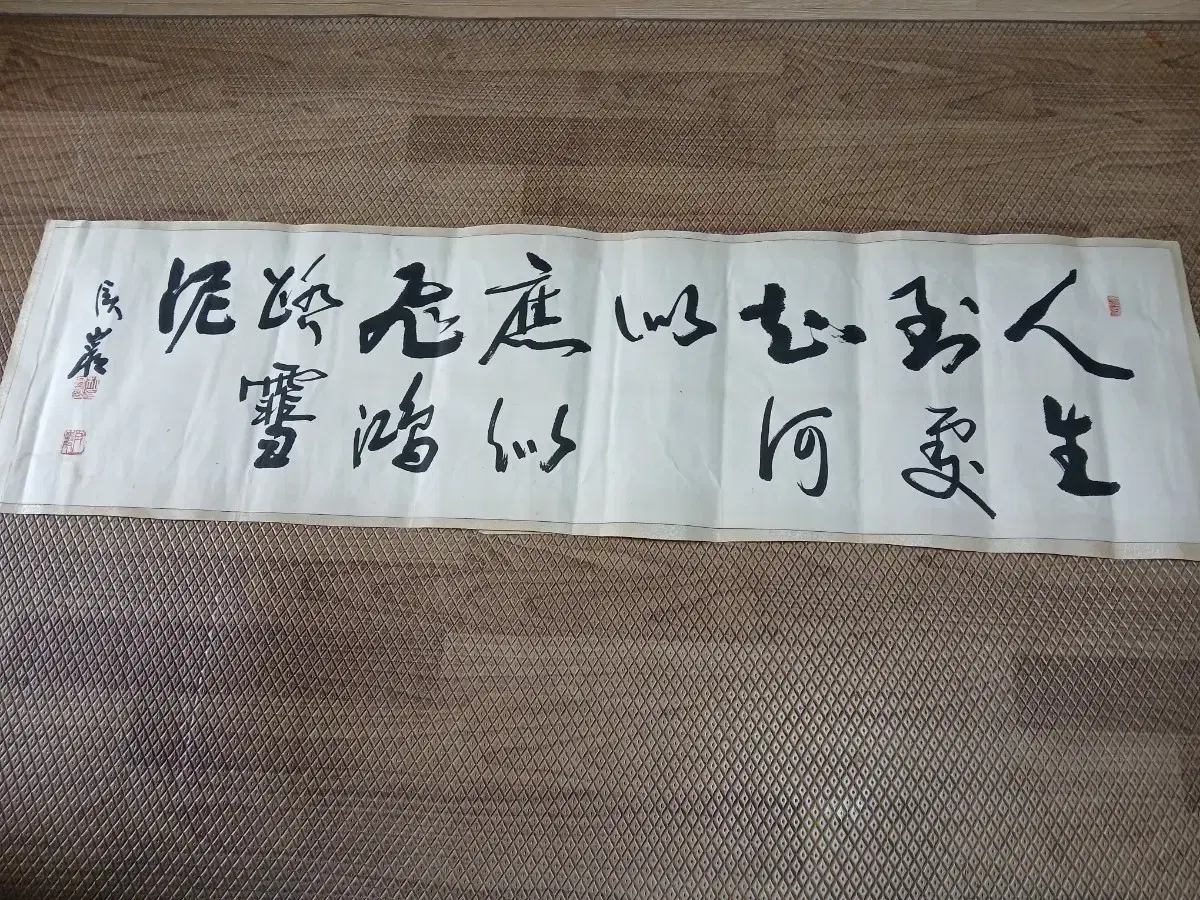 人生
到處
知何
似
應似
飛鴻
踏雪
泥